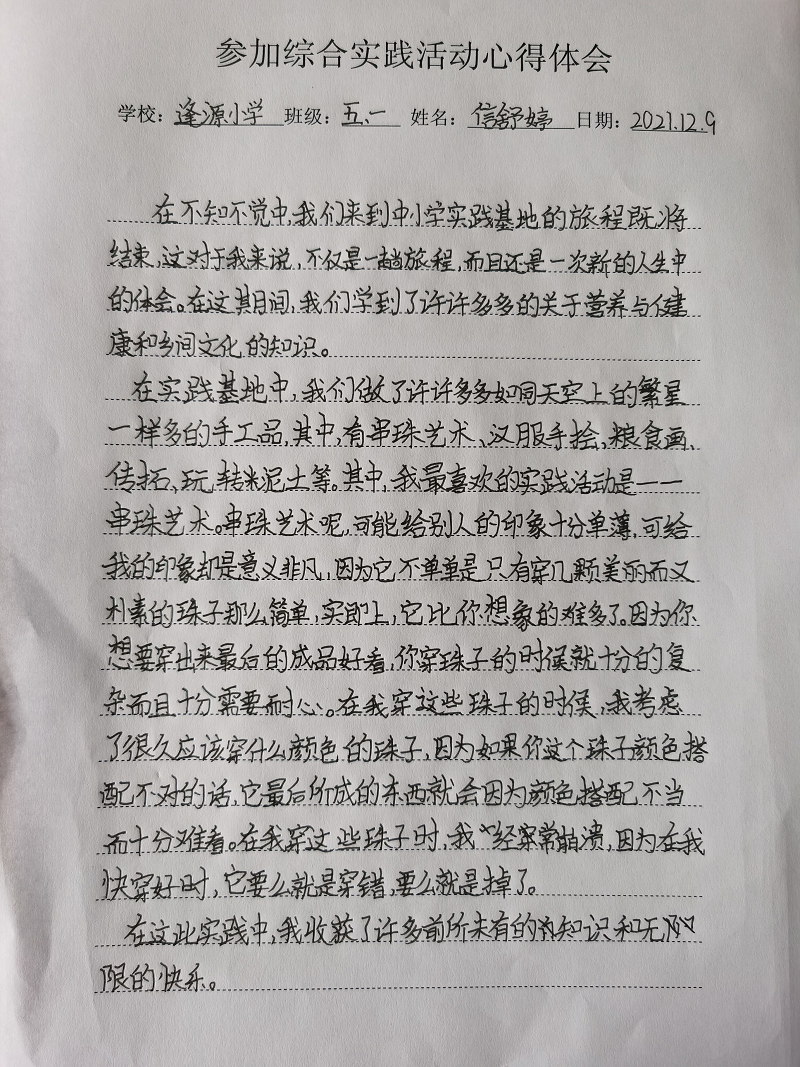 参加综合实践活动心得体会
学校：逢源小学 班级：五、一 姓名：信舒婷 日期：2021.12.9
在不知不觉中,我们来到中小学实践基地的旅程既将
结束,这对于我来说,不仅是一趟旅程,而且还是一次新的人生中
的体会。在这其间,我们学到了许许多多的关于营养与健
康和乡间文化的知识。
在实践基地中,我们做了许许多多如同天空上的繁星
一样多的手工品,其中,有串珠艺术、汉服手绘,粮食画、
传拓、玩转米泥土等。其中,我最喜欢的实践活动是——
串珠艺术。串珠艺术呢,可能给别人的印象十分单薄,可给
我的印象却是意义非凡,因为它不单单是只有穿几颗美丽而又
朴素的珠子那么简单,实即上,它比你想象的难多了。因为你
想要穿出来最后的成品好看,你穿珠子的时候就十分的复
杂而且十分需要耐心。在我穿这些珠子的时侯,我考虑
了很久应该穿什么颜色的珠子,因为如果你这个珠子颜色搭
配不对的话,它最后所成的东西就会因为颜色搭配不当
而十分难看。在我穿这些珠子时,我经常崩溃,因为在我
快穿好时,它要么就是穿错,要么就是掉了。
在这此实践中,我收获了许多前所未有的知识和无
限的快乐。